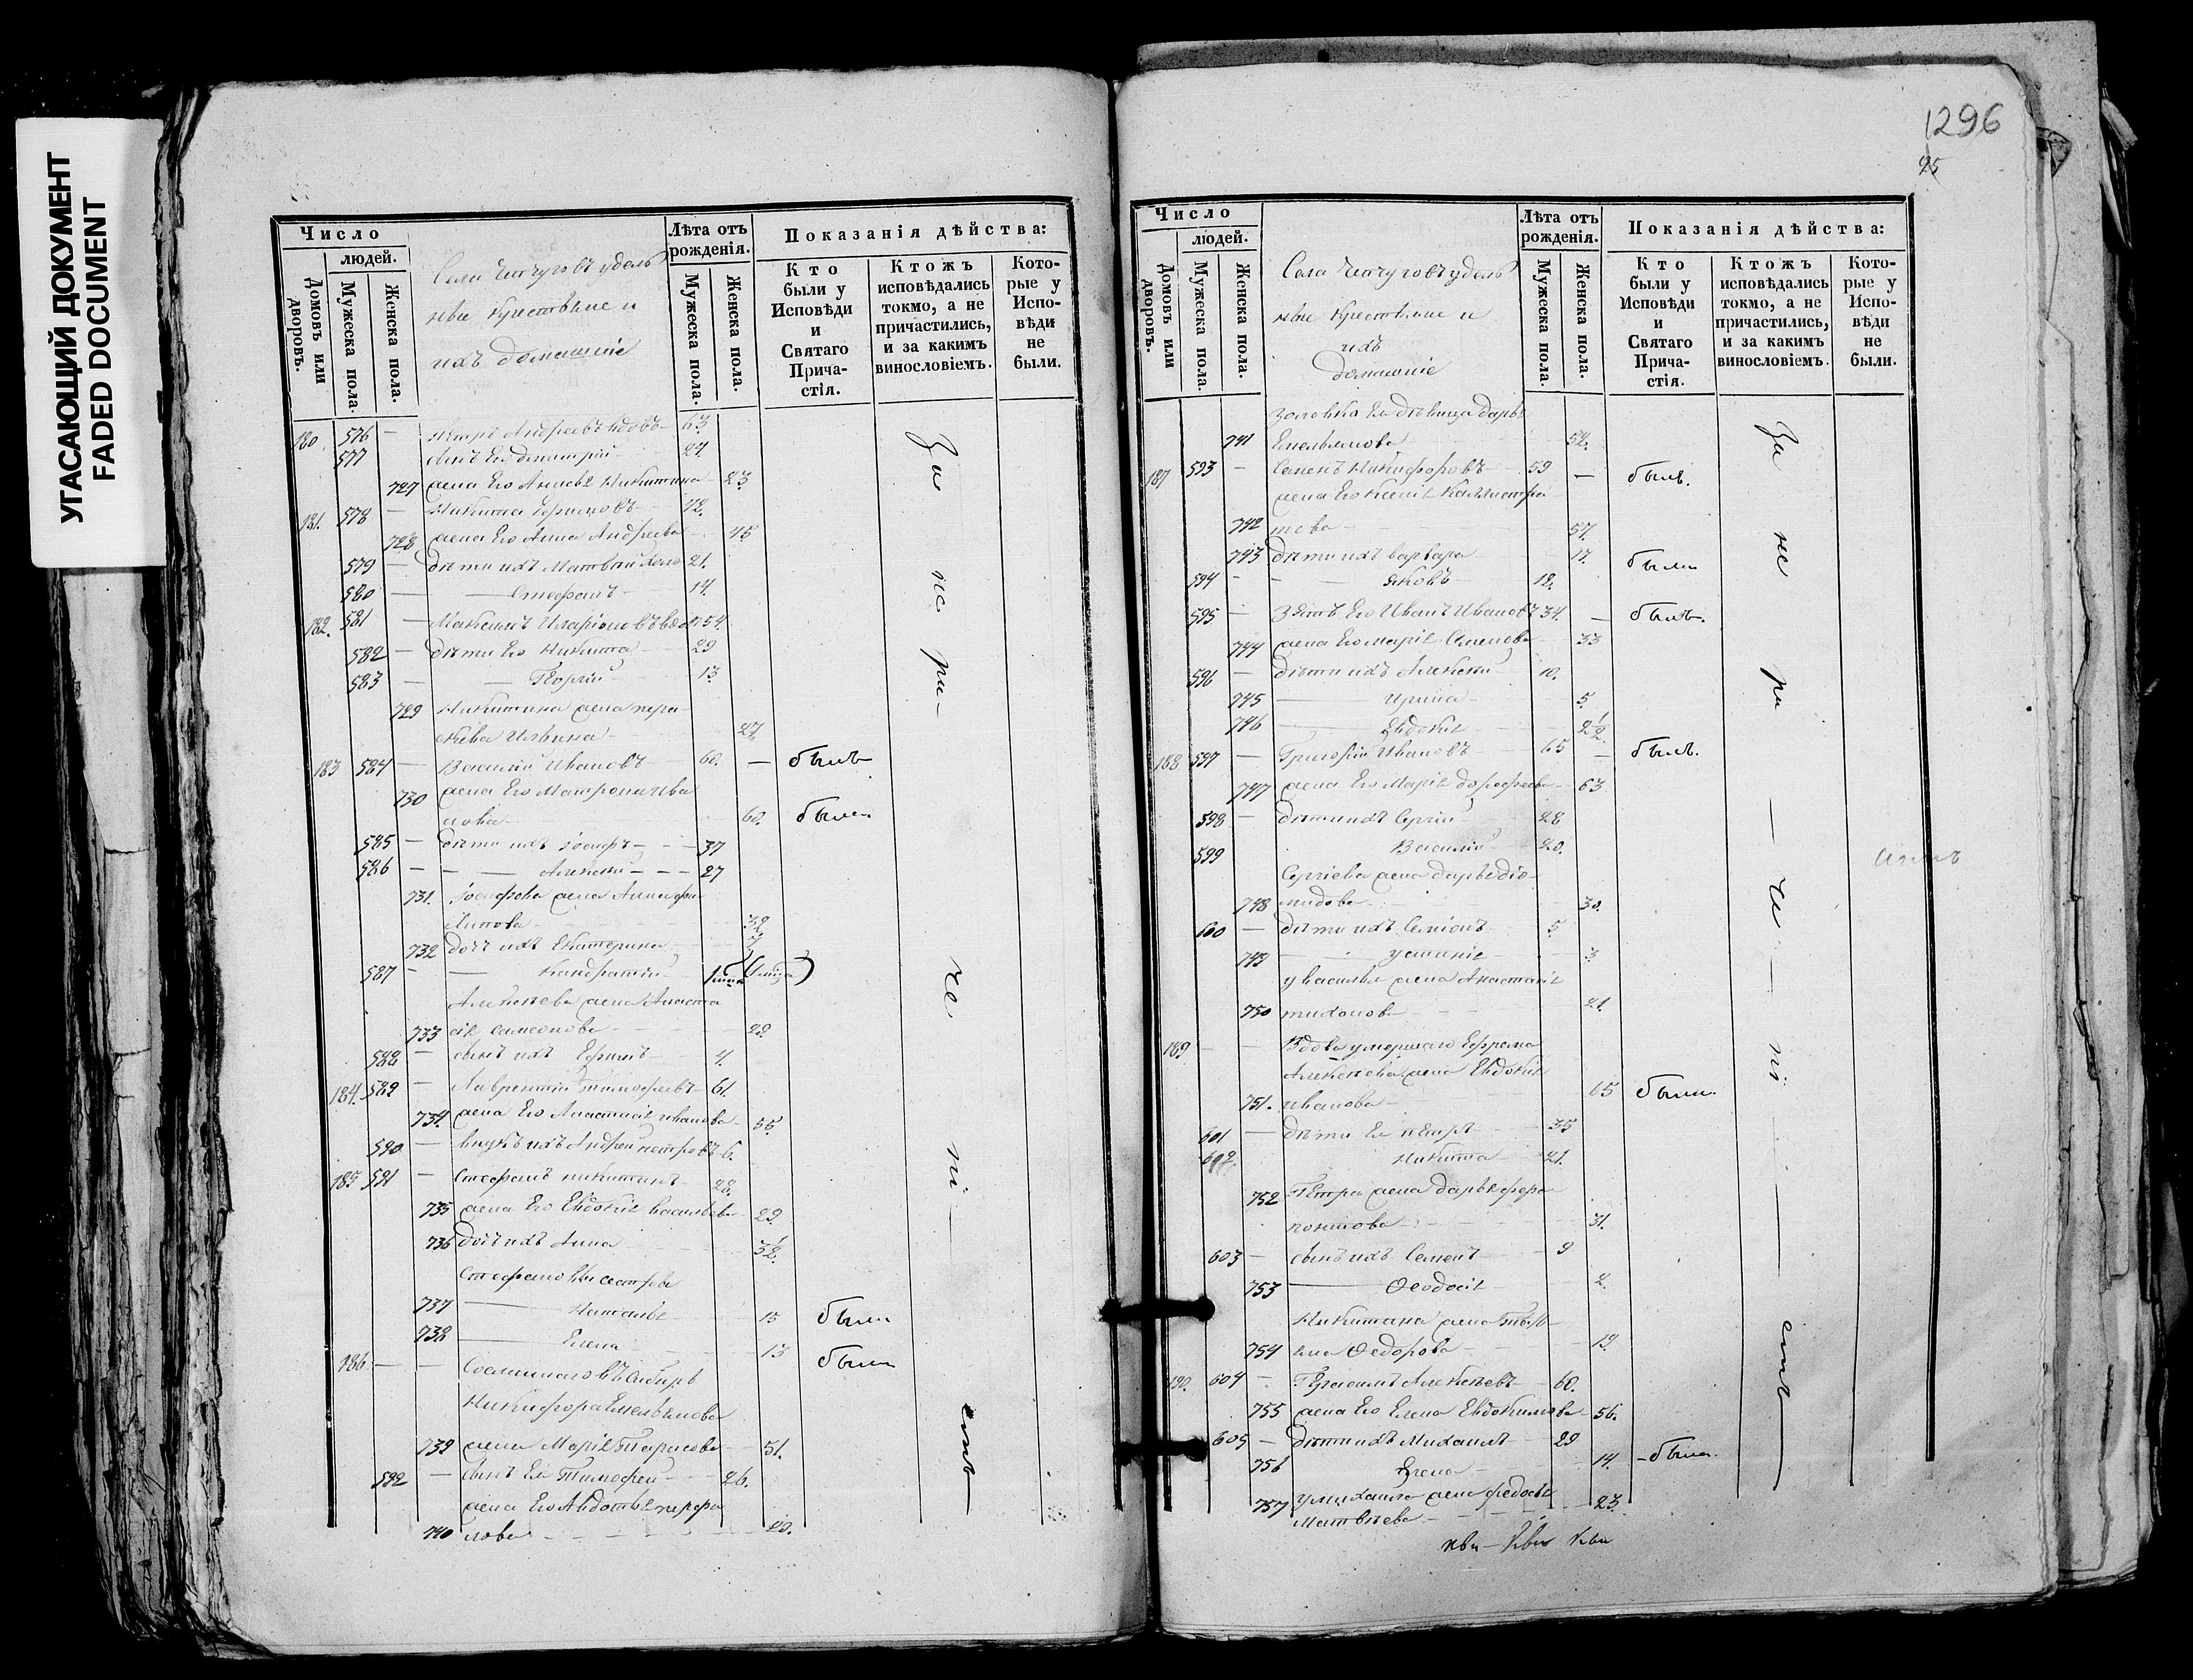 УГАСАЮЩИЙ ДОКУМЕНТ
FADED DOCUMENT
Число
людей.
Домовъ или дворовъ.
Мужеска пола.
Женска пола.
Села удель
ные крестьяне и
ихъ домашніе
Лѣта отъ рожденія.
Мужеска пола.
Женска пола.
Показанія дѣйства:
Кто были у Исповѣди и Святаго Прича-стія.
Ктожъ исповѣдались токмо, а не причастились, и за какимъ винословіемъ.
Кото-рые у Испо-вѣди не были.
180 576 — Петръ Андреевъ вдовъ 63
577 сынъ Его Димитрій 24
727 жена Его Никитина 23
181. 578 — Никита 42.
728 жена Его Анна Андреева 45
579 — дѣти ихъ Матвѣй 21.
580 — Стефанъ 14.
182. 581 — Максимъ Иларіоновъ вдов 54.
582 — дѣти Его Никита 29
583 — Георгій 13
729 Никитина жена пара-
скева Ильина 27
183 584 — Василій Ивановъ 60. — былъ
730 жена Его Матрона Ива
нова 60. была
585 — дѣти ихъ Іосифъ 37
586 — Алексѣй 27
731. Іосифова жена Анна фи-
липова 32
732 дочь ихъ Екатерина 7
587 — Кондратій
Алексѣева жена Анаста
733 сія Самсонова 22
588 — сынъ ихъ Ефимъ 4.
184. 589 — Лаврентій Тимофеевъ 61.
734. жена Его Анастасія иванова 55.
590 — внукъ ихъ Андрей петровъ 6.
185 591 — Стефанъ никитинъ 28.
735 жена Его Евдокія васильева 29.
736 дочь ихъ Анна 3½
Стефановы сестры
737 Наталья 15 была
738 Елена 13 была
186 — — Сосланнаго въ Сибирь
Никифора Емельянова
739 жена Марія Тарасова 51.
592 — сынъ Ея Тимофей 26.
жена Его Авдотья перфи
740 лова 20.
За не ра- че ні- емъ
1296
95
Число
людей.
Домовъ или дворовъ.
Мужеска пола.
Женска пола.
Села удель
ные крестьяне и
ихъ
домашніе
Лѣта отъ рожденія.
Мужеска пола.
Женска пола.
Показанія дѣйства:
Кто были у Исповѣди и Святаго Прича-стія.
Ктожъ исповѣдались токмо, а не причастились, и за какимъ винословіемъ.
Кото-рые у Испо-вѣди не были.
золовка Ея дѣвица дарья
741 Емельянова 52.
187 593 — Семенъ Никифоровъ 59 — былъ.
жена Его Ксенія Каллистра
742 това 57.
743 дѣти ихъ варвара 17. была
594 — Яковъ 12.
595 — Зять Его Иванъ Ивановъ 34. — былъ.
744 жена Его Марія Семенова 33
596 — дѣти ихъ Алексѣй 10.
745 Ирина 5
746 Евдокія 2½
188 597 — Григорій Ивановъ 65 — былъ.
747 жена Его Марія дорофеева 63
598 — дѣти ихъ Сергій 28
599 Василій 20.
Сергіева жена дарья діо-
748 мидова 30.
600 — дѣти ихъ Семіонъ 5
749 устинія 3
у василья жена Анастасія
750 тихонова 21.
189 — — Вдова умершаго Ефрема
Алексѣева жена Евдокія
751. иванова 65 была.
601 — дѣти Ея петръ 35
602. Никита 21.
752 Петра жена дарья фера
понтова 31.
603 — сынъ ихъ Семенъ 9
753 Ѳеодосія 2.
Никитина жена Татья
754 на Ѳедорова 19.
190. 604 — Герасимъ Алексѣевъ 60.
755 жена Его Елена Евдокимова 56.
605 — дѣти ихъ Михаилъ 29
756 Елена 14. — была.
757 у михаила жена федосья
Матвѣева 23.
За не ра — че — ні — емъ